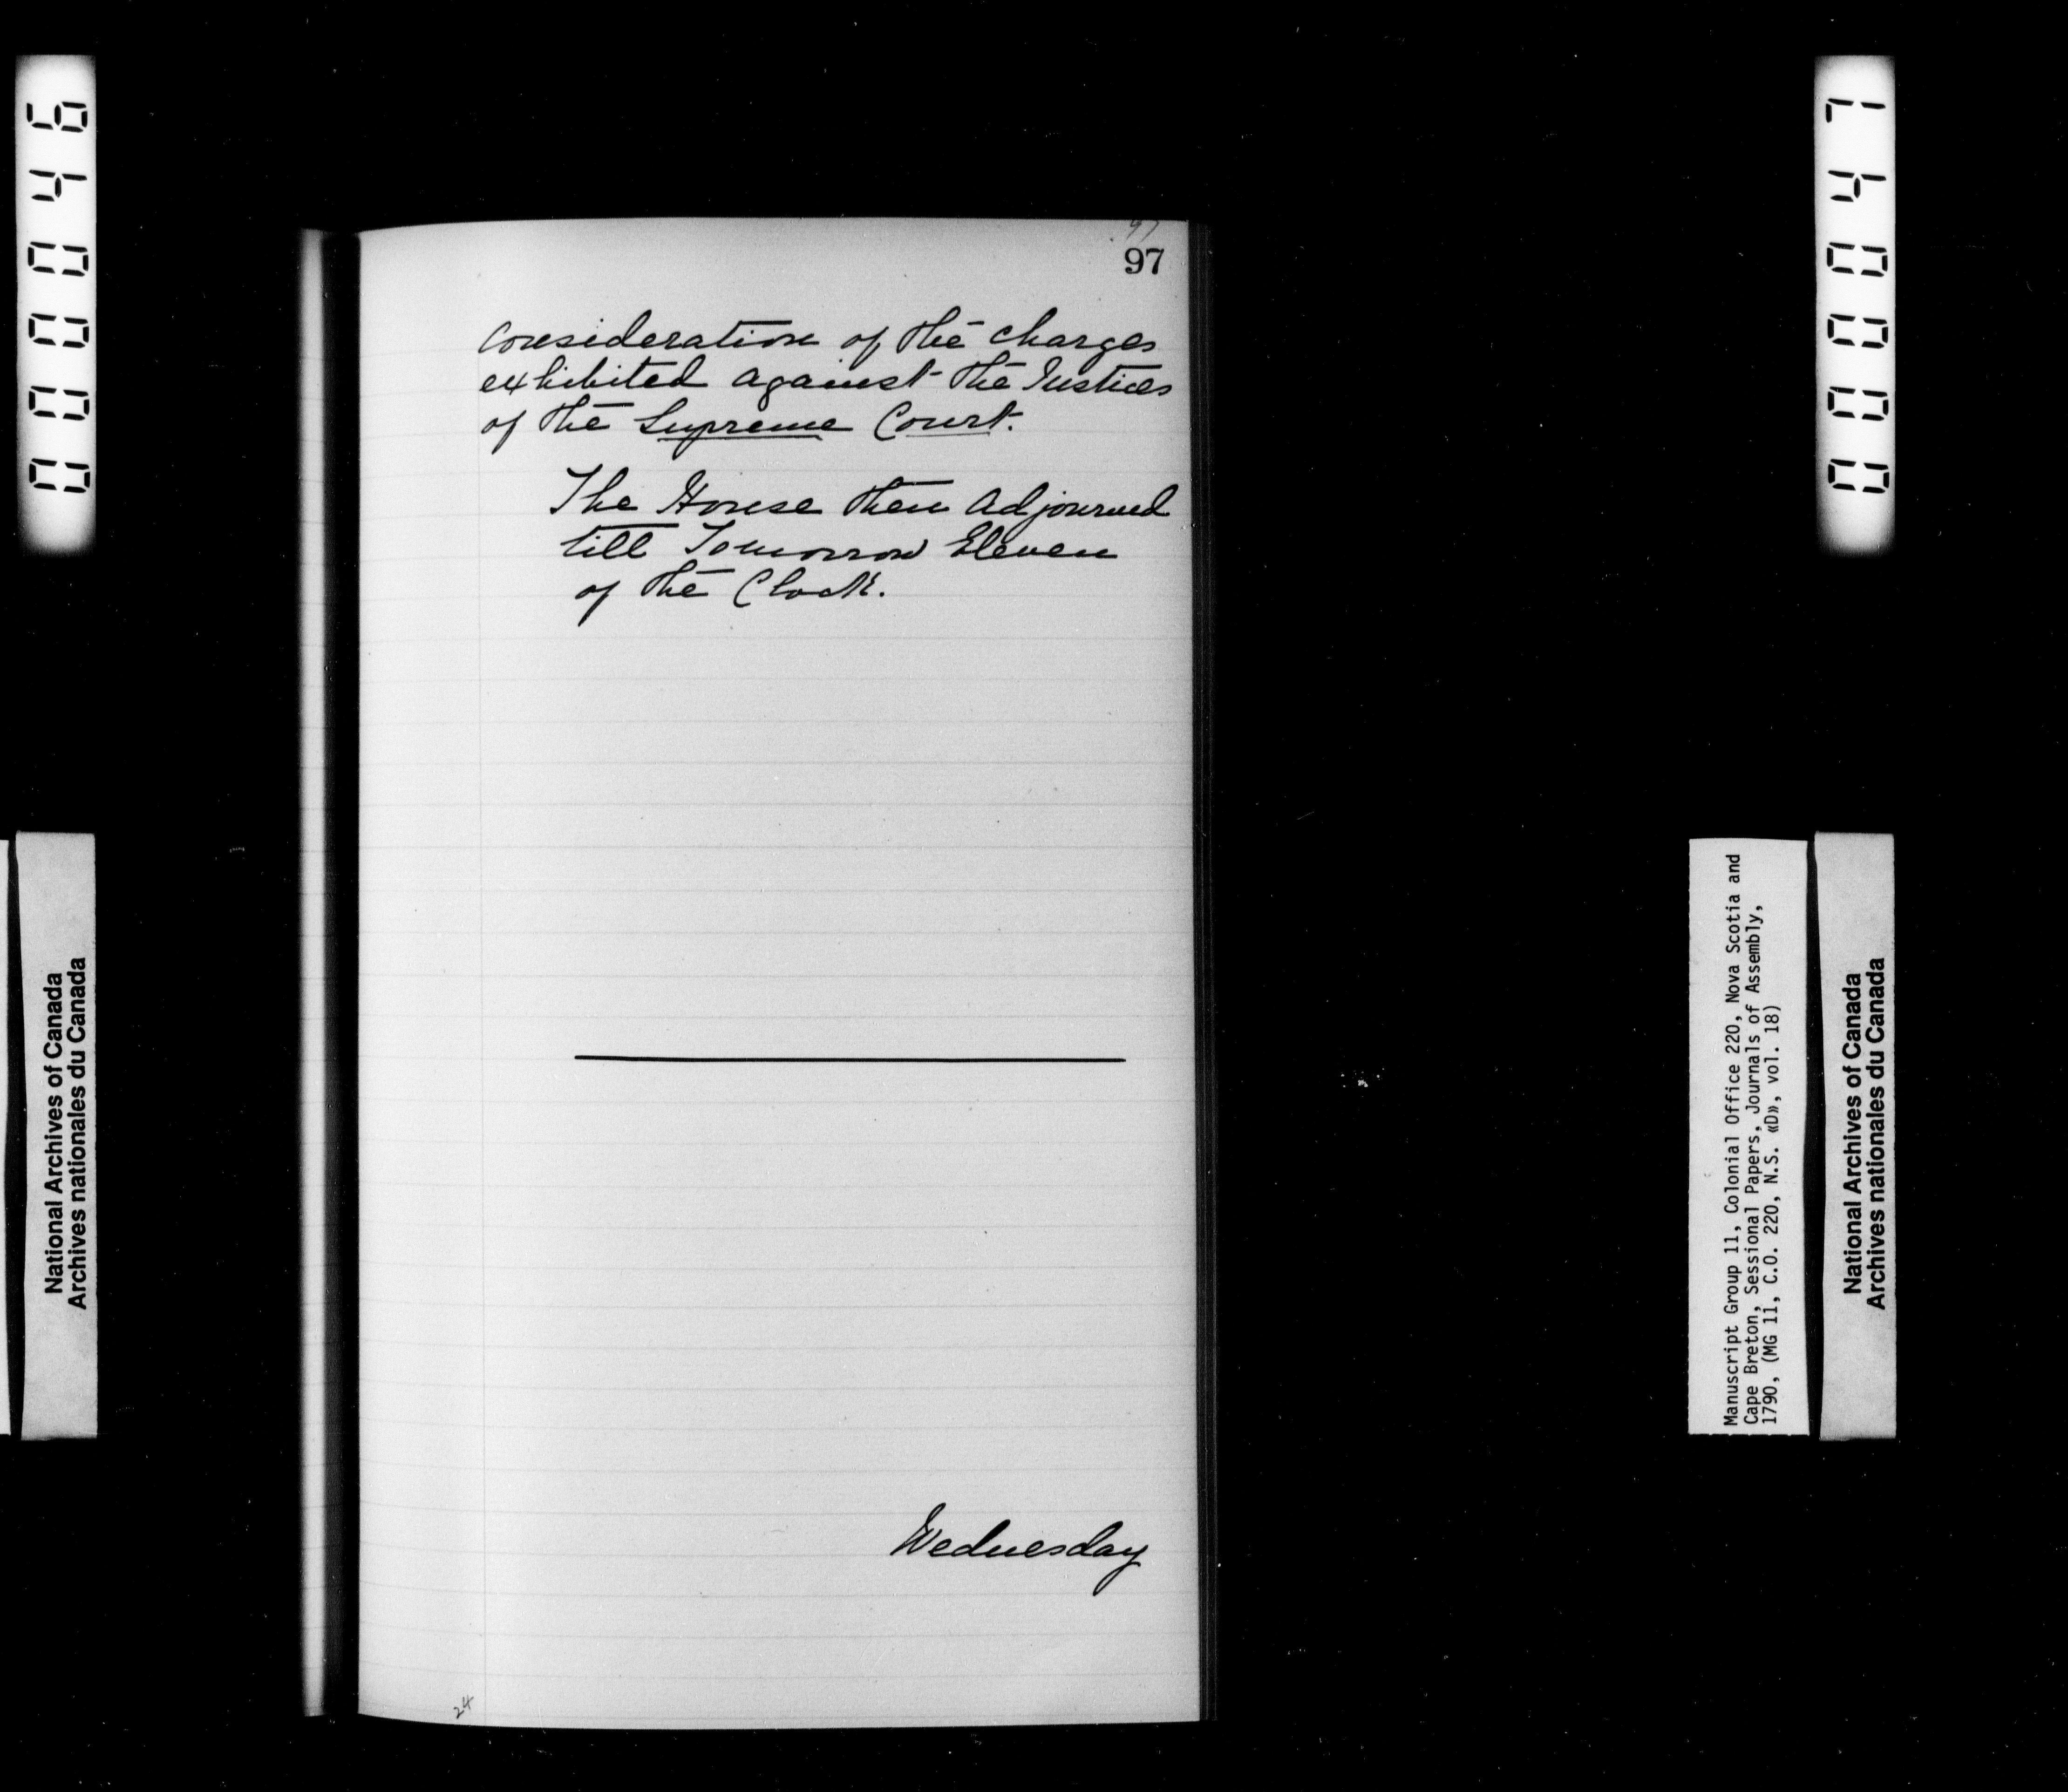 000046
National Archives of Canada
Archives nationales du Canada
97
97
consideration of the charges
exhibited against the Justices
of the Supreme Court.
The House then adjourned
till Tomorrow Eleven
of the Clock.
Wednesday
24
000047
Manuscript Group 11, Colonial Office 220, Nova Scotia and
Cape Breton, Sessional Papers, Journals of Assembly,
1790, (MG 11, C.O. 220, N.S. «D», vol. 18)
National Archives of Canada
Archives nationales du Canada